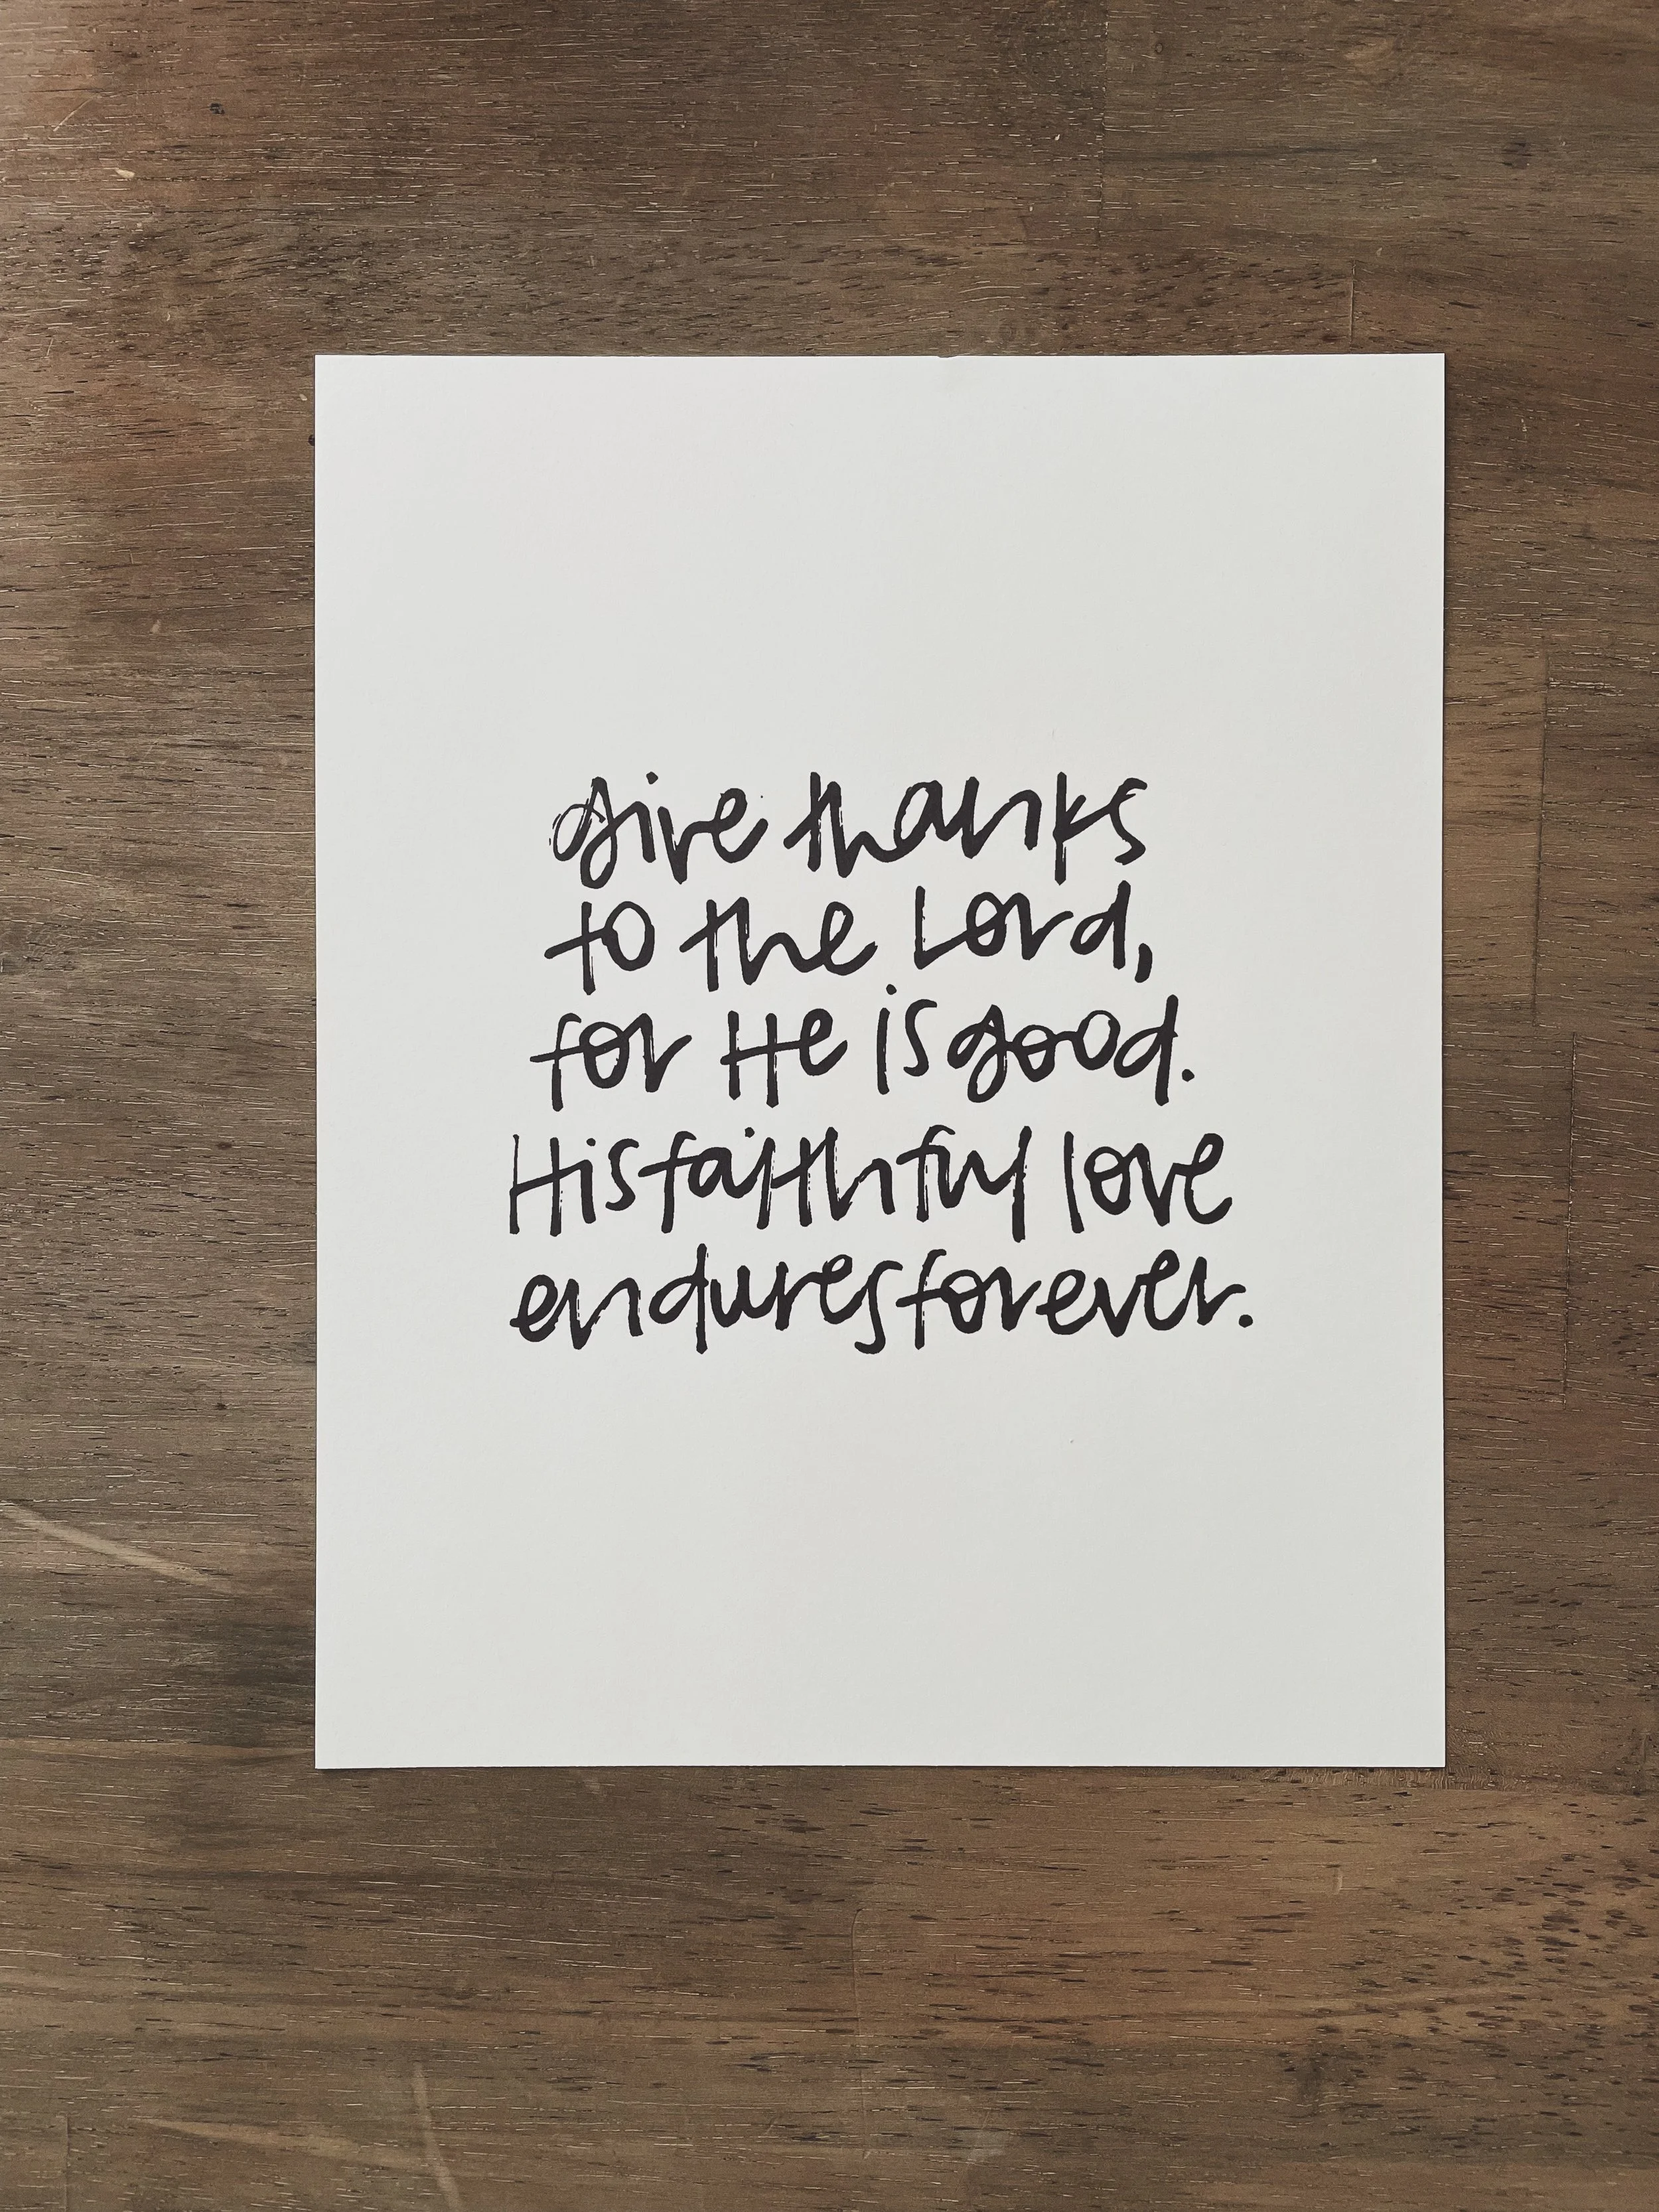 give thanks
to the Lord,
for He is good.
His faithful love
endures forever.